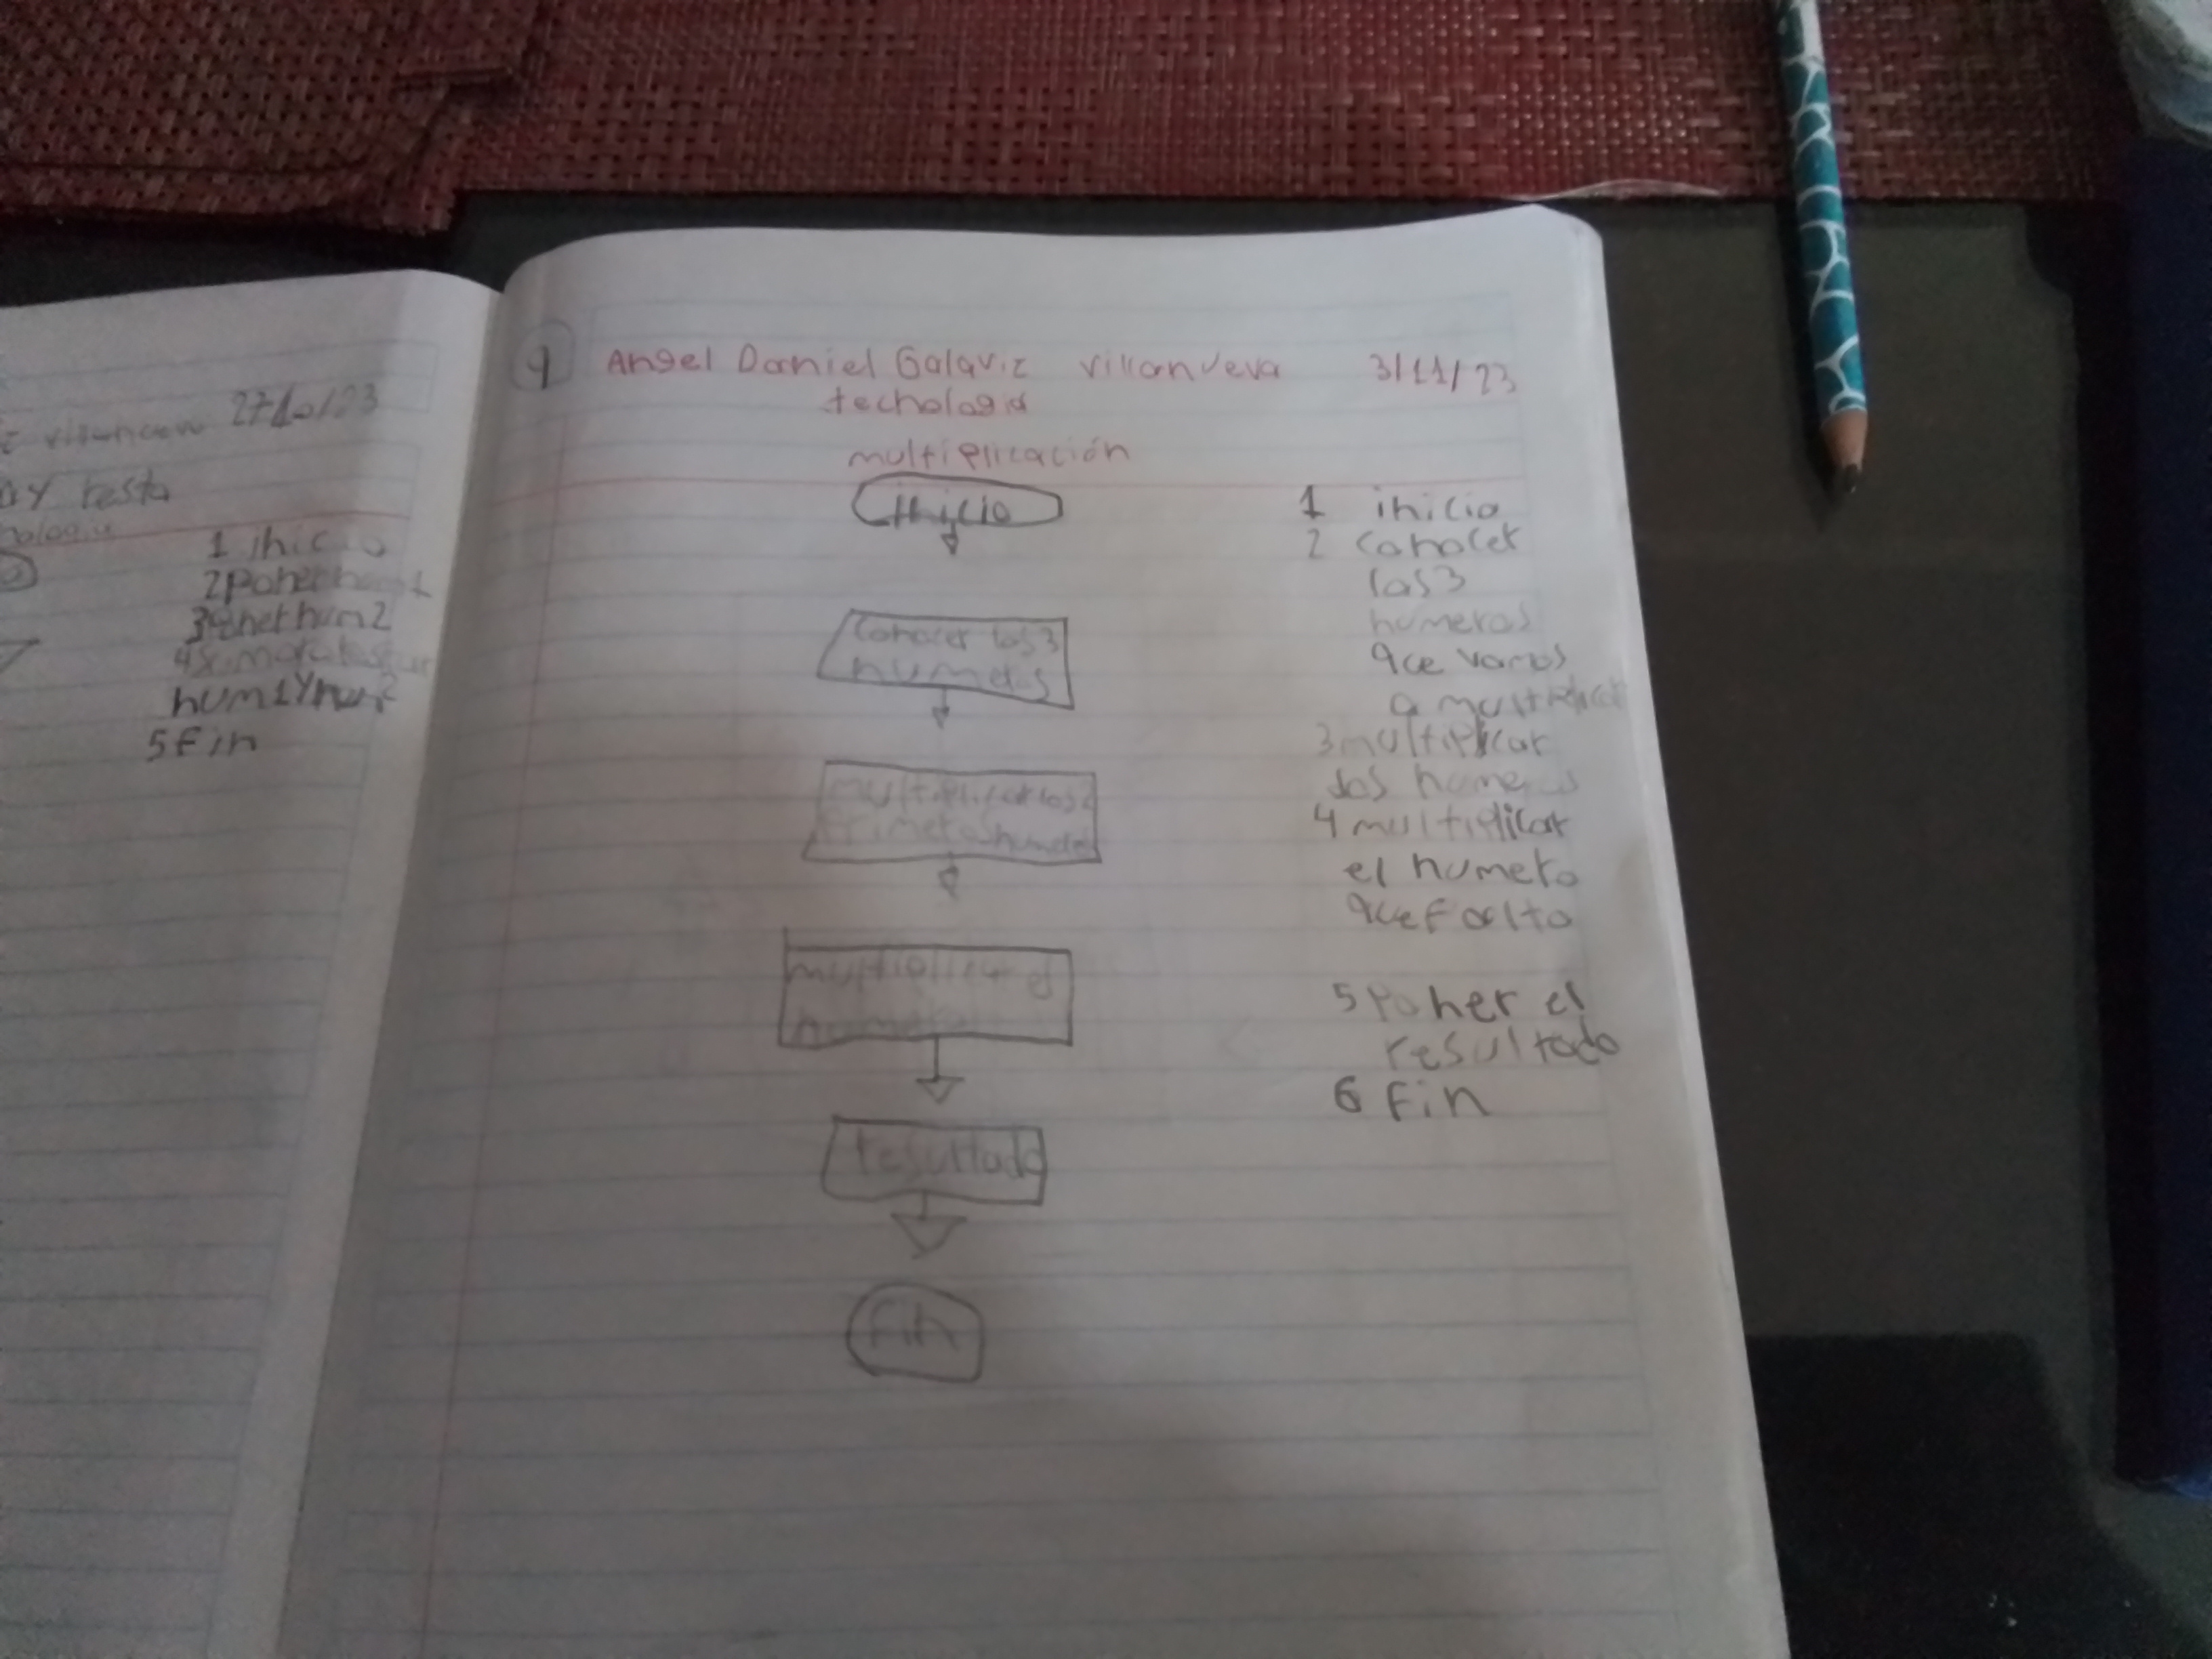 villanueva 27/10/23
y resta
1 inicio
2 poner
3 poner num2
num1 y num2
5 fin
9
Angel Daniel Galaviz villanueva 3/11/23
technologia
multiplicación
inicio
conocer los 3
numeros
multiplicar los 2
primeros numeros
multiplicar el
numero
resultado
Fin
1 inicio
2 conocer
los 3
numeros
que vamos
a multiplicar
3 multiplicar
los numeros
4 multiplicar
el numero
que falto
5 poner el
resultado
6 fin